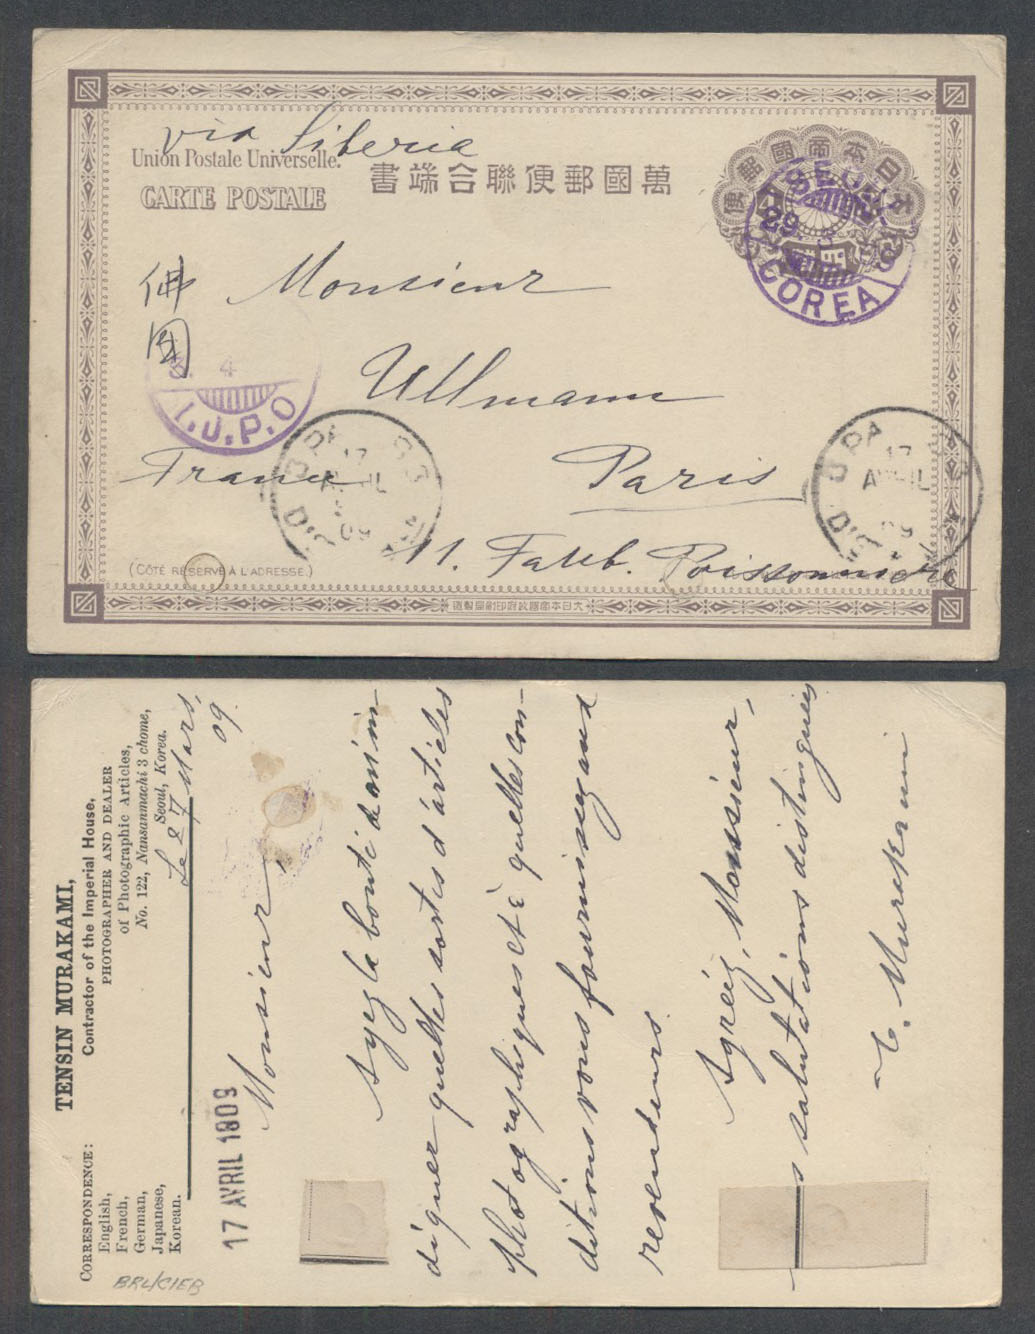 via Siberia
Union Postale Universelle.
CARTE POSTALE
萬國郵便聯合端書
大日本帝國郵便
SEOUL
29
COREA
佛
国
Monsieur
Ullmann
4
I.J.P.O
France
Paris
11. Faub. Poissonnière
17
AVRIL
09
17
AVRIL
09
(CÔTÉ RÉSERVÉ À L'ADRESSE.)
大日本帝國政府印刷局製造
TENSIN MURAKAMI,
Contractor of the Imperial House,
PHOTOGRAPHER AND DEALER
of Photographic Articles,
No. 122, Nansanmachi 3 chome,
Seoul, Korea.
CORRESPONDENCE:
English,
French,
German,
Japanese,
Korean.
Le 27 Mars,
09.
17 AVRIL 1909
Monsieur,
Ayez la bonté de m'in
diquer quelles sortes d'articles
photographiques et à quelles con-
ditions vous fournissez aux
revendeurs.
Agréez, Monsieur,
s salutations distinguées
T. Murakami